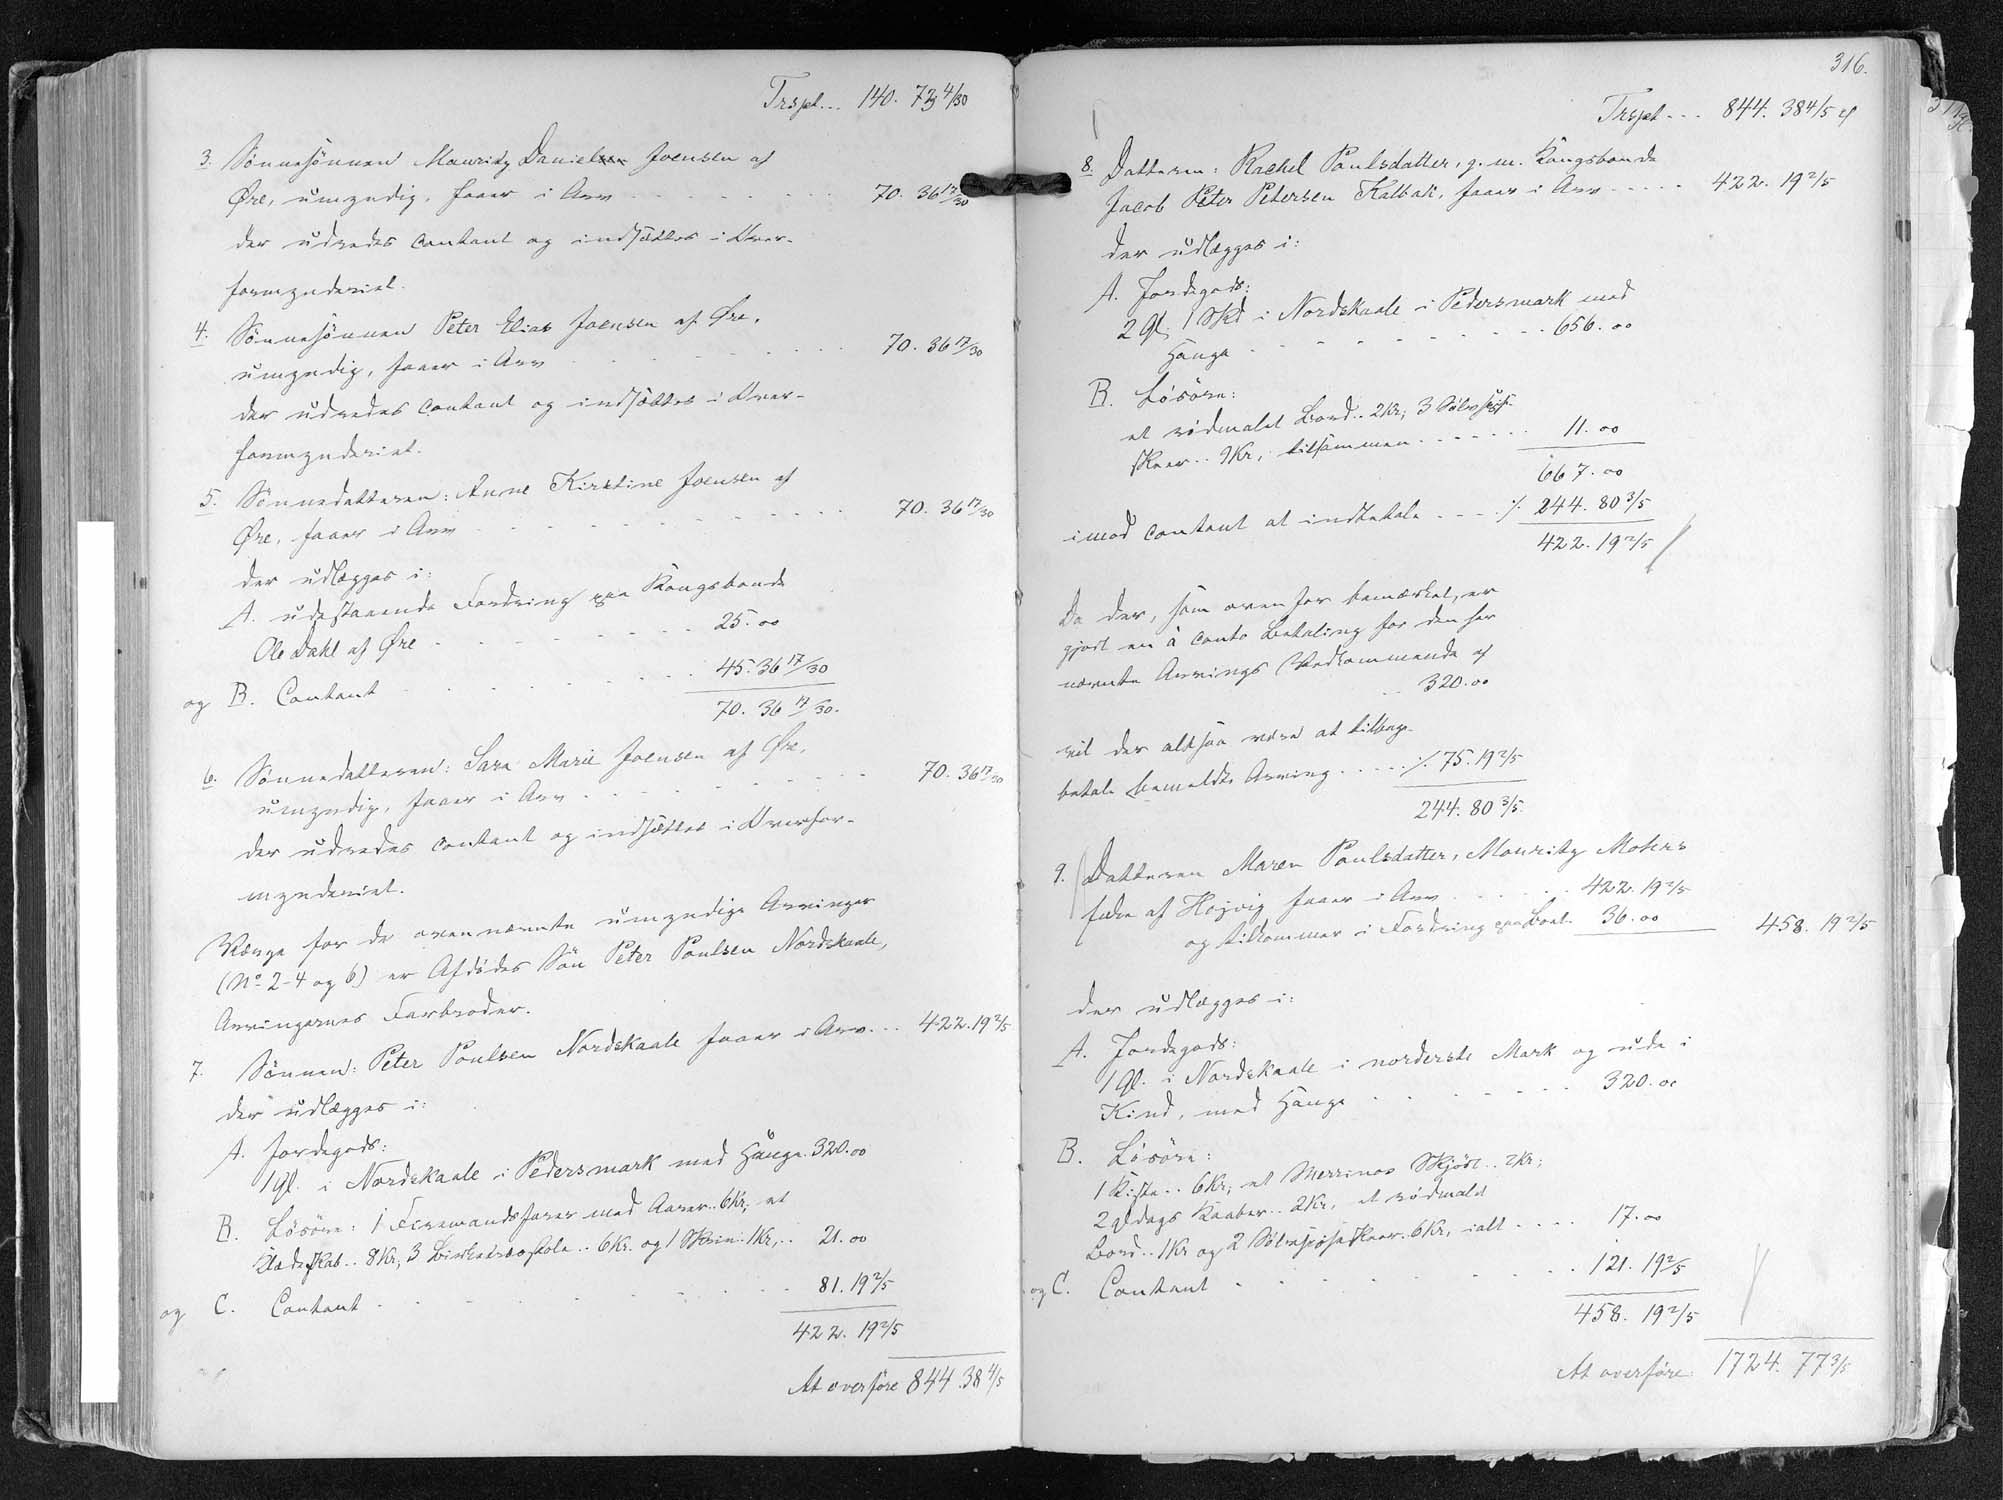 Trspt... 140. 73 4/30
3. Sønnesønnen Mouritz Daniel Joensen af
Øre, umyndig, faaer i Arv . . . . . . 70. 36 17/30
der udredes contant og indsættes i Over-
formynderiet.
4. Sønnesønnen Peter Elias Joensen af Øre,
umyndig, faaer i Arv . . . . . . 70. 36 17/30
der udredes contant og indsættes i Over-
formynderiet.
5. Sønnedatteren: Anne Kirstine Joensen af
Øre, faaer i Arv . . . . . . 70. 36 17/30
der udlægges i:
A. udestaaende Fordring paa Kongsbonde
Ole Dahl af Øre . . . . . . 25. 00
og B. Contant . . . . . . 45. 36 17/30
70. 36 17/30.
6. Sønnedatteren: Sara Marie Joensen af Øre,
umyndig, faaer i Arv . . . . . . 70. 36 17/30
der udredes contant og indsættes i Overfor-
mynderiet.
Værge for de ovennævnte umyndige Arvinger
(No 2-4 og 6) er Afdødes Søn Peter Poulsen Nordskaale,
Arvingernes Farbroder.
7. Sønnen: Peter Poulsen Nordskaale faaer i Arv... 422. 19 2/5
der udlægges i:
A. Jordegods:
1 Gl. i Nordskaale i Pedersmark med Hauge. 320. 00
B. Løsøre: 1 Firemandsfarer med Aarer.. 6 Kr, et
Klædeskab.. 8 Kr, 3 Birketræsstole.. 6 Kr. og 1 Skrin. 1 Kr,.. 21. 00
og C. Contant . . . . . . 81. 19 2/5
422. 19 2/5
At overføre 844. 38 4/5
316.
Trspt... 844. 38 4/5
8. Datteren: Rachel Poulsdatter, g. m. Kongsbonde
Jacob Peter Petersen Kalbak, faaer i Arv . . . . . 422. 19 2/5
der udlægges i:
A. Jordegods:
2 Gl. 1 Skd i Nordskaale i Pedersmark med
Hauge . . . . . . 656. 00
B. Løsøre:
et rødmalet Bord.. 2 Kr; 3 Sølvspise-
skeer.. 9 Kr, tilsammen . . . . . . 11. 00
667. 00
imod contant at indbetale . . . . ⁒ 244. 80 3/5
422. 19 2/5
Da der, som oven for bemærket, er
gjort en à conto Betaling for den her
nævnte Arvings Vedkommende af
320. 00
vil der altsaa være at tilbage-
betale bemeldte Arving . . . . ⁒ 75. 19 2/5
244. 80 3/5.
9. Datteren Maren Poulsdatter, Mouritz Mohrs
af Hojvig faaer i Arv . . . . . 422. 19 2/5
og tilkommer i Fordring paa Boet. 36. 00 458. 19 2/5
der udlægges i:
A. Jordegods:
1 Gl. i Nordskaale i norderste Mark og ude i
Kind, med Hauge . . . . . . 320. 00
B. Løsøre:
1 Kiste.. 6 Kr; et Merrinos Skjört.. 2 Kr;
2 Kaaber.. 2 Kr, et rødmalet
Bord.. 1 Kr og 2 Sølvspiseskeer. 6 Kr, ialt . . . . 17. 00
og C. Contant . . . . . . 121. 19 2/5
458. 19 2/5
At overføre 1724. 77 3/5